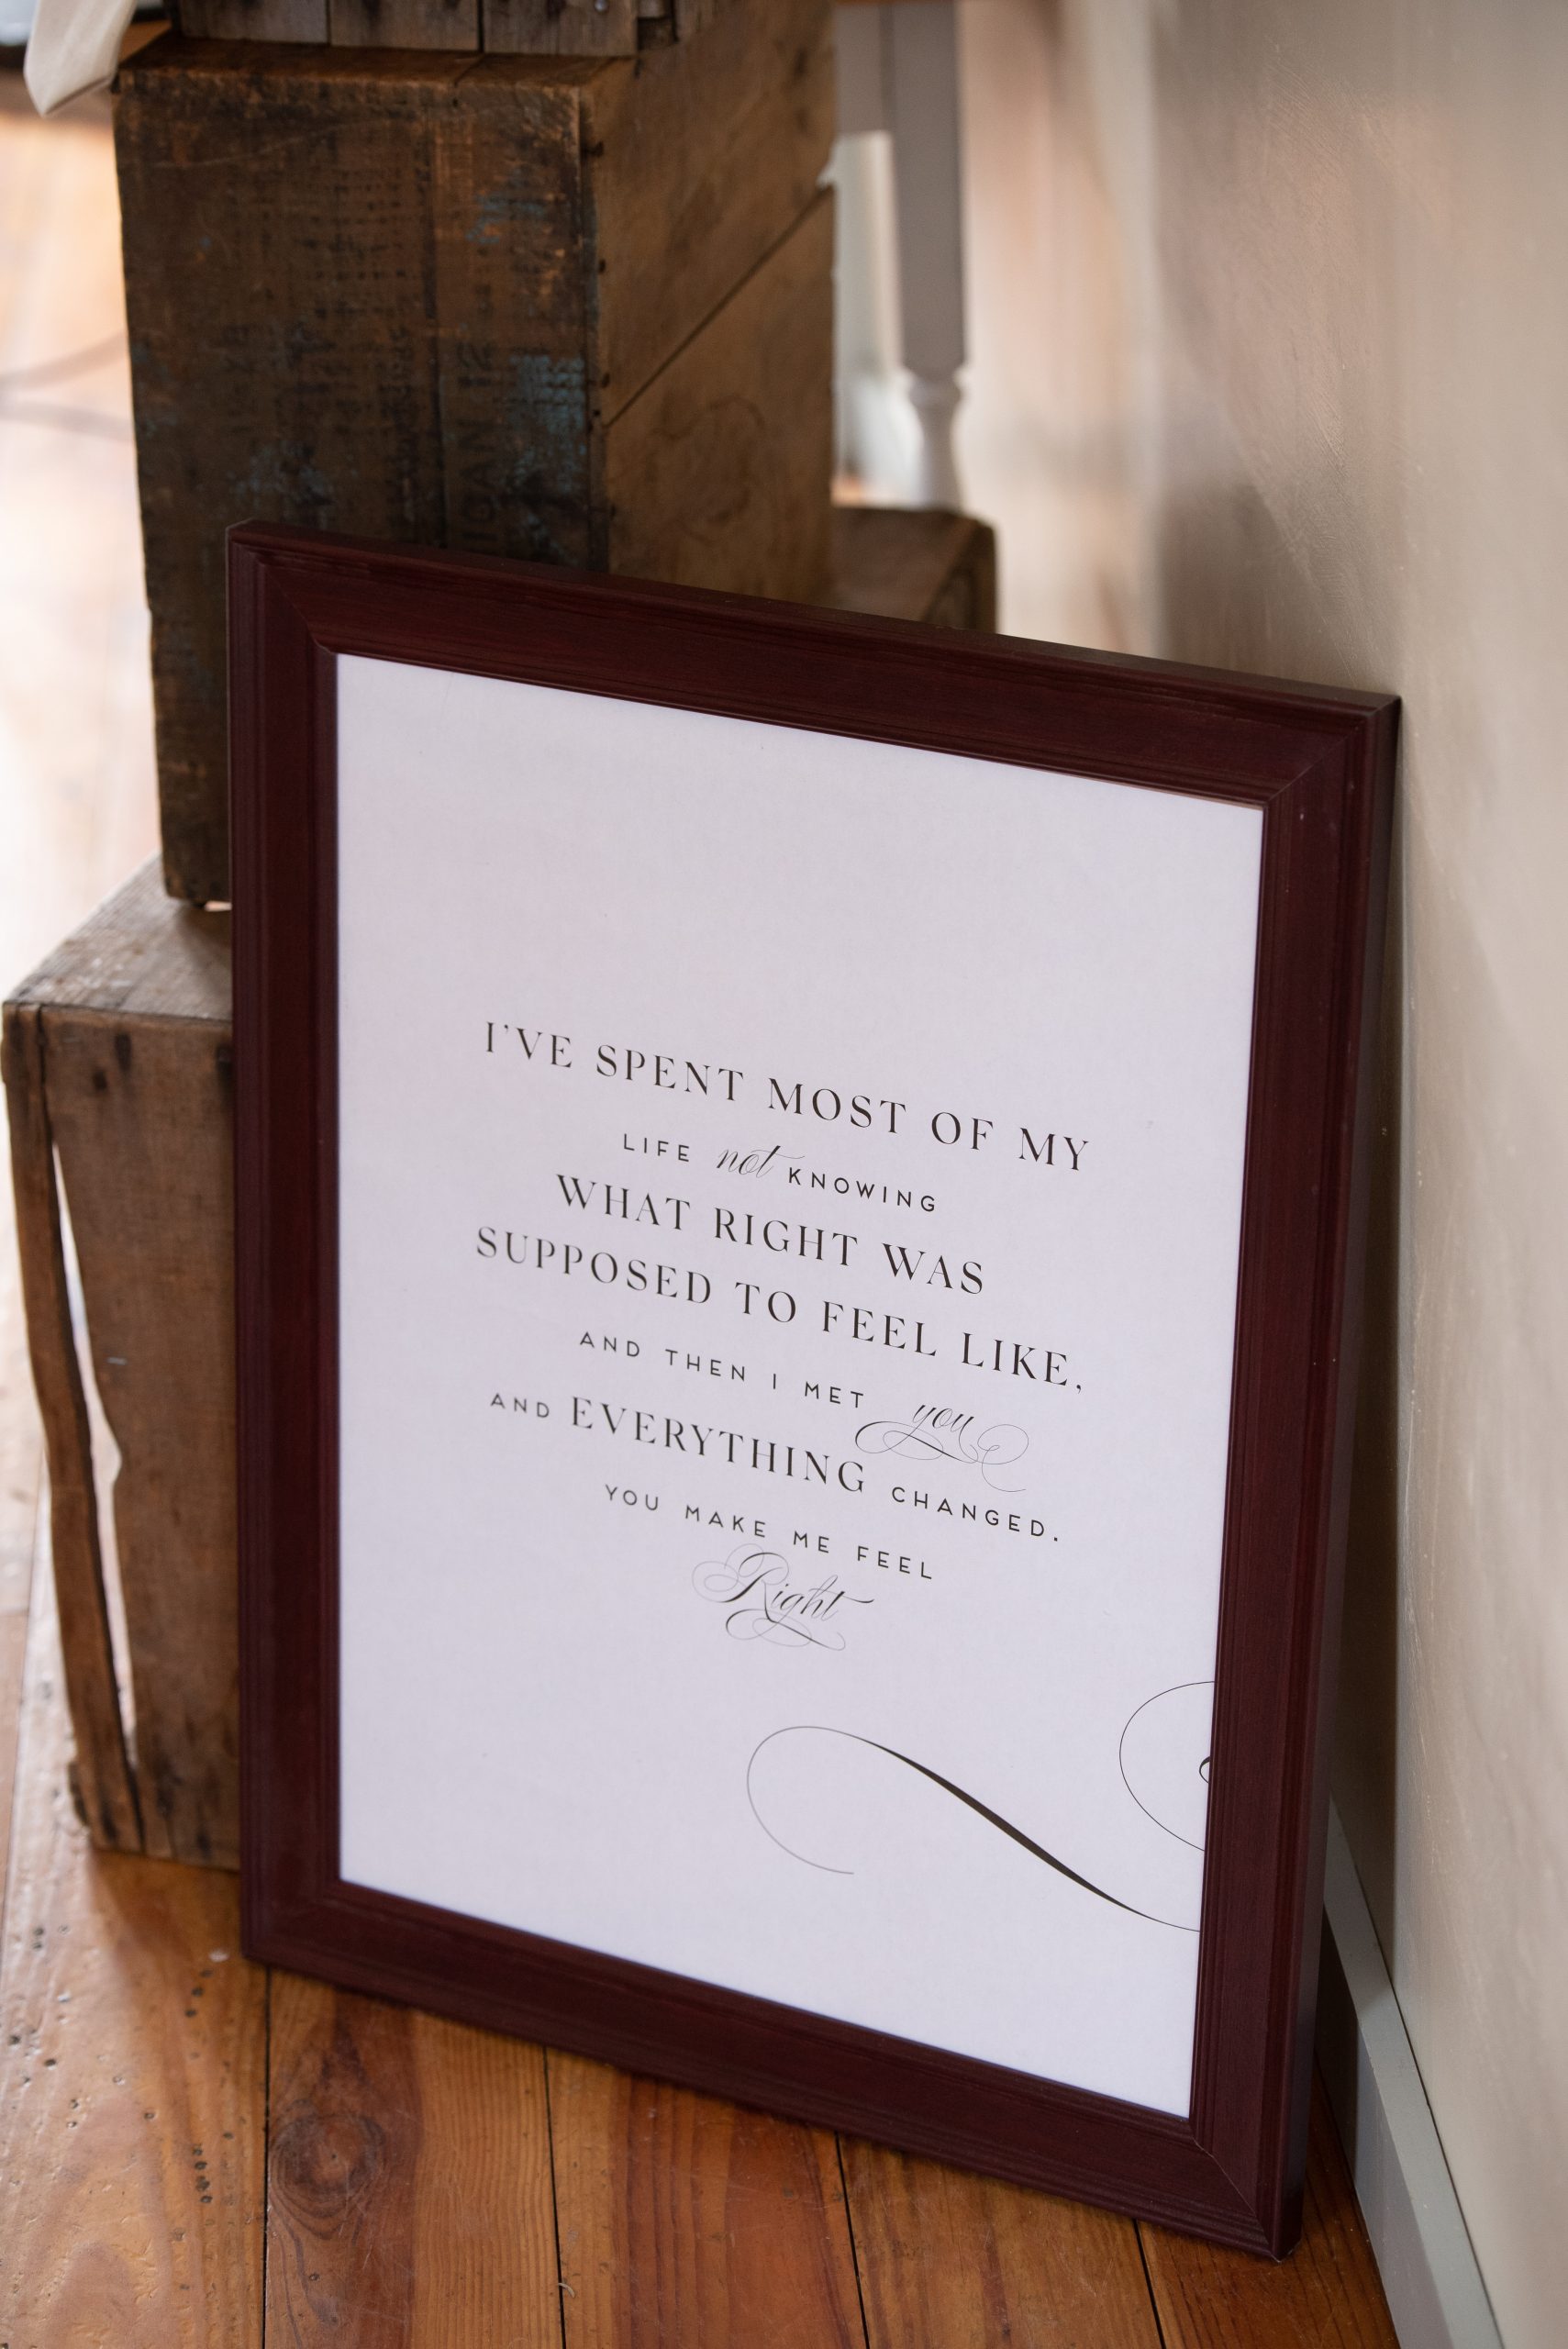 I'VE SPENT MOST OF MY
LIFE not KNOWING
WHAT RIGHT WAS
SUPPOSED TO FEEL LIKE,
AND THEN I MET you
AND EVERYTHING CHANGED.
YOU MAKE ME FEEL
Right